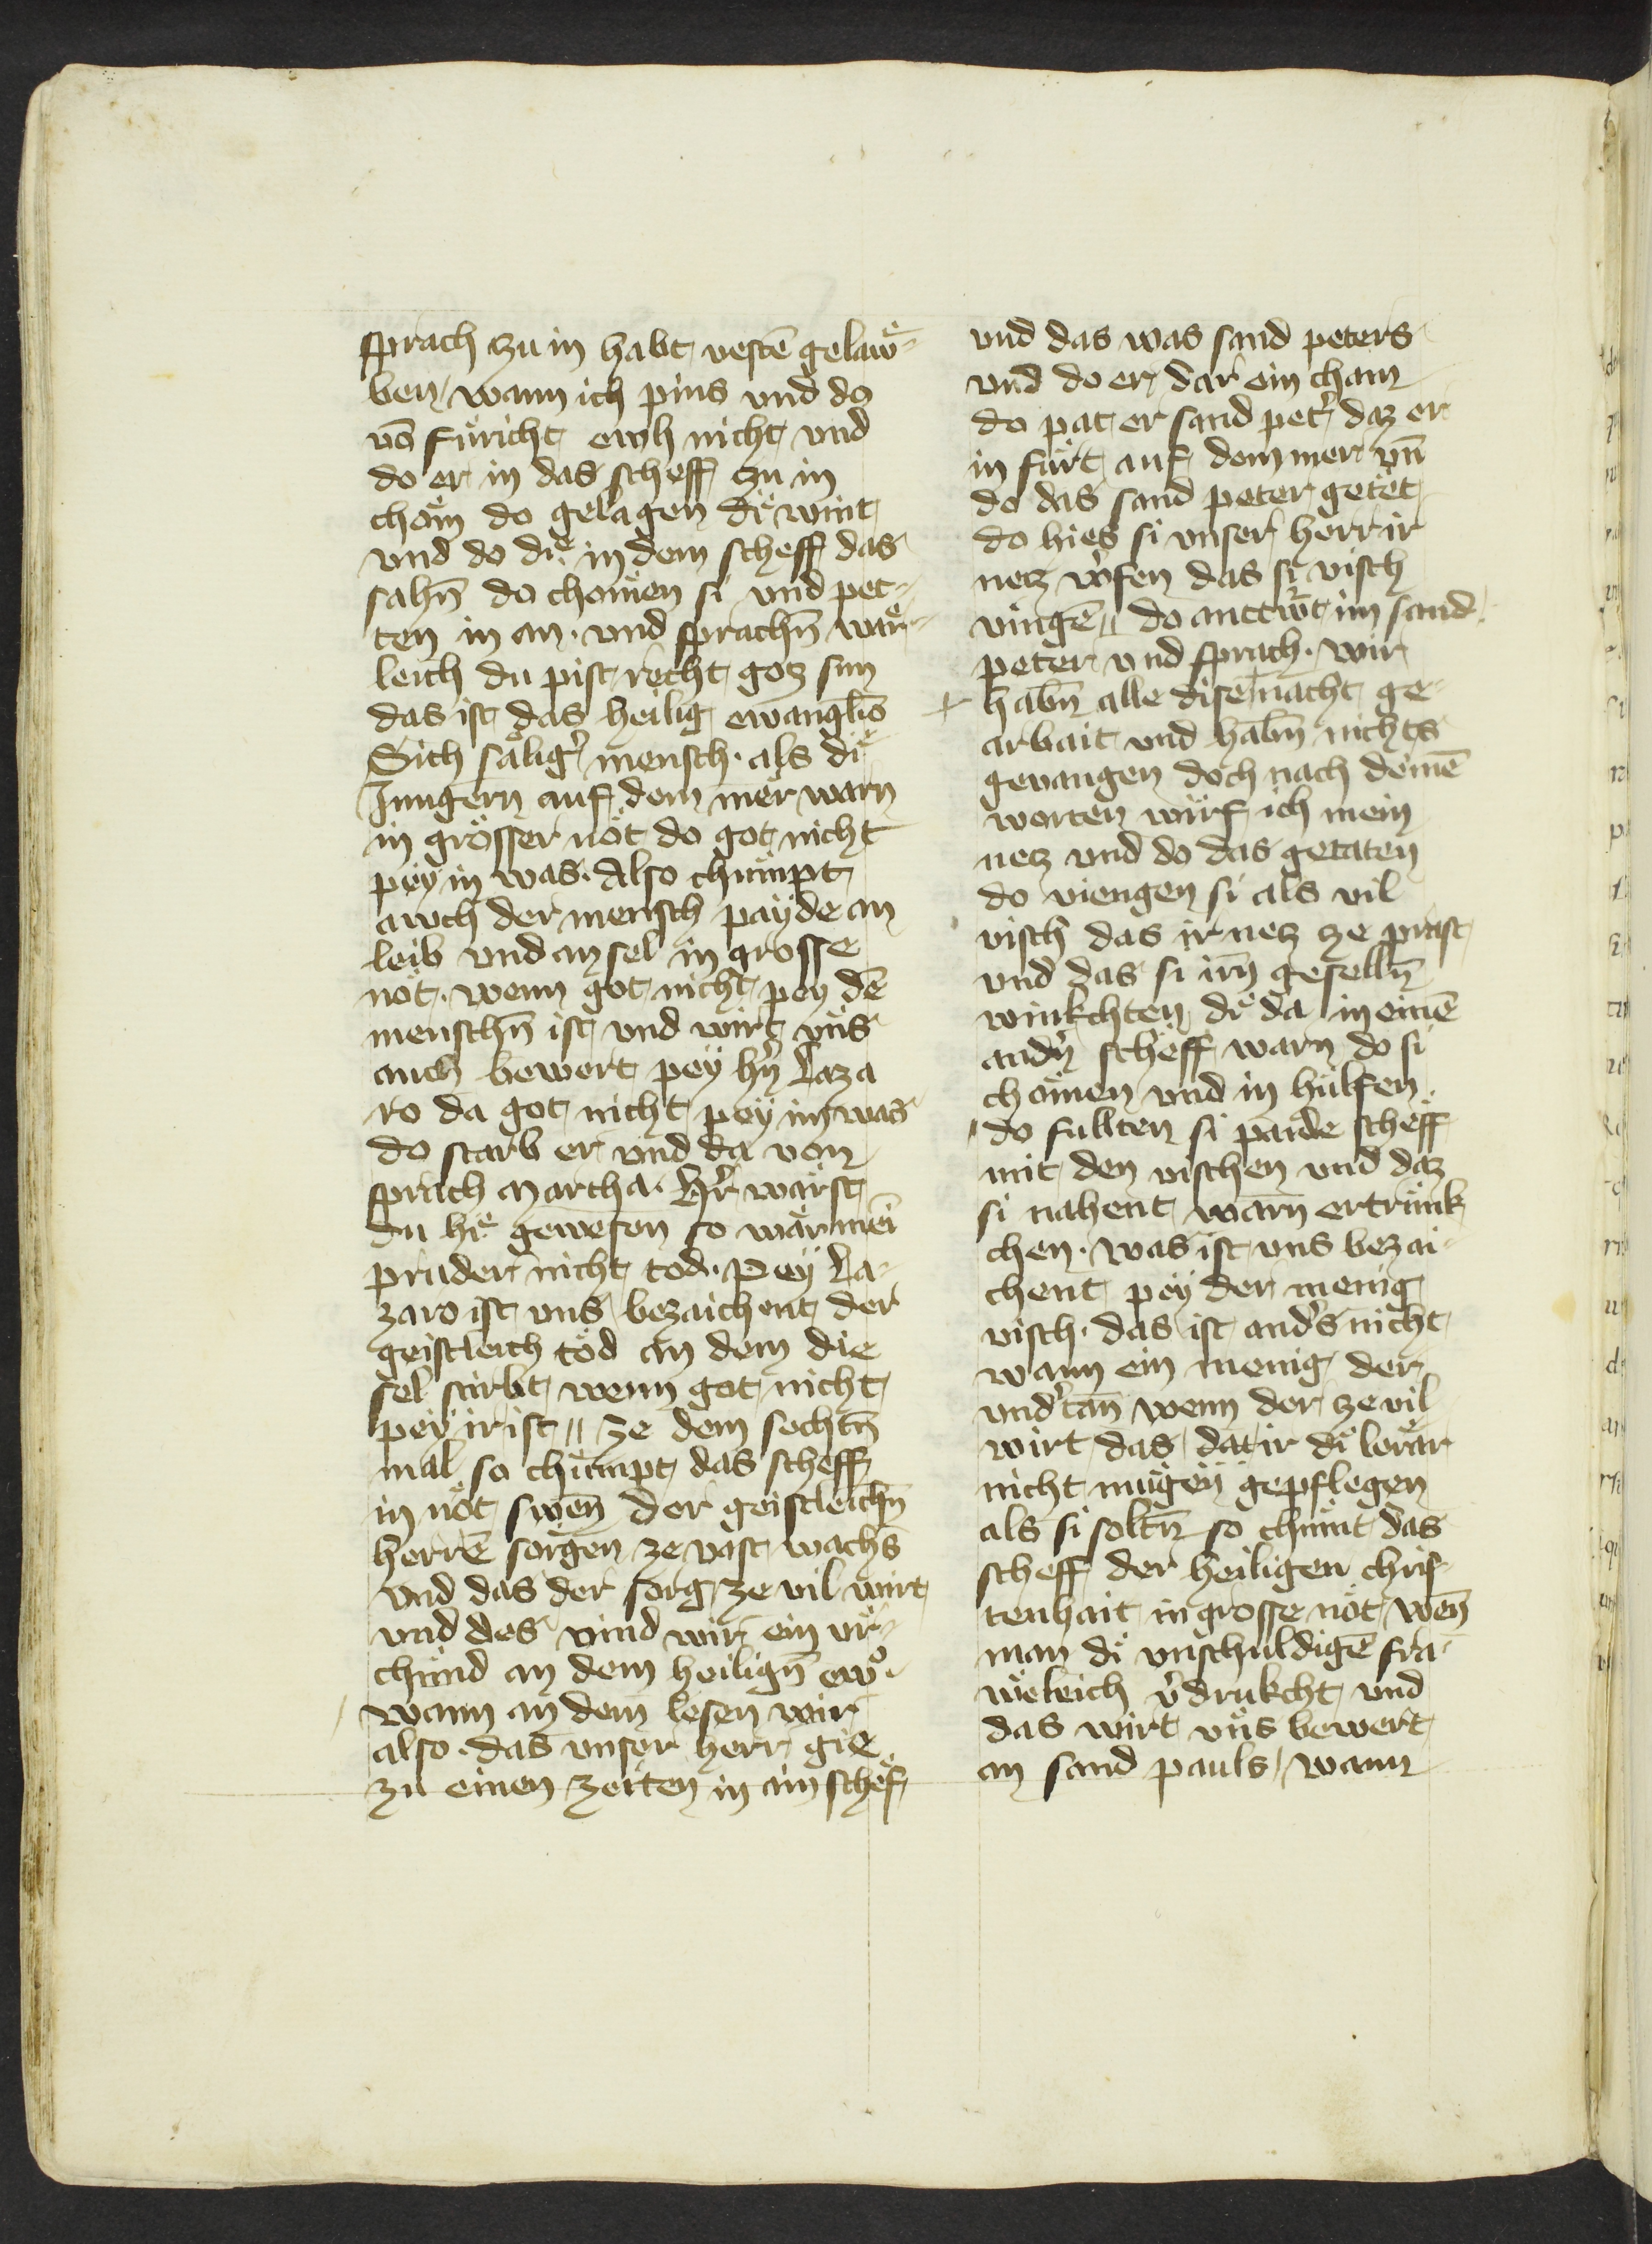 sprach zu in habt vestē gelaẘ-
ben wann ich pins vnd do
vō fuͤricht ewh nicht vnd
do er in das scheff zu in
chom do gelagen diͤ wint
vnd do diͤ in dem scheff das
sahn̄ do chomen si vnd pet-
ten in an · vnd sprachn̄ waͤr-
leich du pist recht gotz sun
das ist das heilig ewangl̄io
Sich saͤligꝰ mensch · als diͤ
Jungern auf dem mer warn
in grosser noͤt do got nicht
peÿ in was · Also chuͤmpt
awch der mensch paÿde an
leib vnd an sel in grosse
noͤt · wenn got nicht pey dē
menschn̄ ist vnd wirt vns
auch bewert peÿ hꝰn Laza
ro da got nicht peÿ im was
do starb er vnd da von
sprach Martha · Hꝰr waͤrst
du hiͤ gewesen so waͤr mei
pruder nicht tod · Peÿ La-
zaro ist vns bezaichent der
geistleich tod an dem die
sel stirbt wenn got nicht
peÿ ir ist // ze dem sechtn̄
mal so chuͤmpt das scheff
in noͤt swen̄ der geistleichn̄
herrē sorgen ze vast wachs
vnd das der sorg ze vil wirt
vnd des vind wir ein vr-
chund an dem heilign̄ ewͦ ·
wann an dem lesen wir
also · das vnser herr gie
zu einen zeiten in ain schef
vnd das was sand peters
vnd do er dar ein cham
do pat er sand petꝰ daz er
in furt auf dem mer vn̄
do das sand peter getet
do hies si vnser herr ir
netz wꝰfen das si visch
vingē // do antwꝰt im sand
peter vnd sprach · wir
habn̄ alle dise nacht ge-
arbait vnd habn̄ nichts
gevangen doch nach deinē
worten wirf ich mein
netz vnd do das getaten
do viengen si als vil
visch das ir netz ze prast
vnd das si irn̄ geselln̄
winkchten diͤ da in einē
andꝰn scheff warn do si
chomen vnd in hulfen
do fullten si paide scheff
mit den vischen vnd daz
si nahent warn̄ ertrunk
chen · was ist vns bezai-
chent peÿ der menig
visch · das ist andꝰs nicht
wann ein menig der
vndꝰtan̄ wenn der ze vil
wirt das dat ir diͤ leraͤr
nicht mugen gepflegen
als si soltn̄ so chumt das
scheff der heiligen chris-
tenhait in grosse noͤt wen̄
man diͤ vnschuldigē fra-
ueleich vꝰdrukcht vnd
das wirt vns bewert
an sand pauls / wann